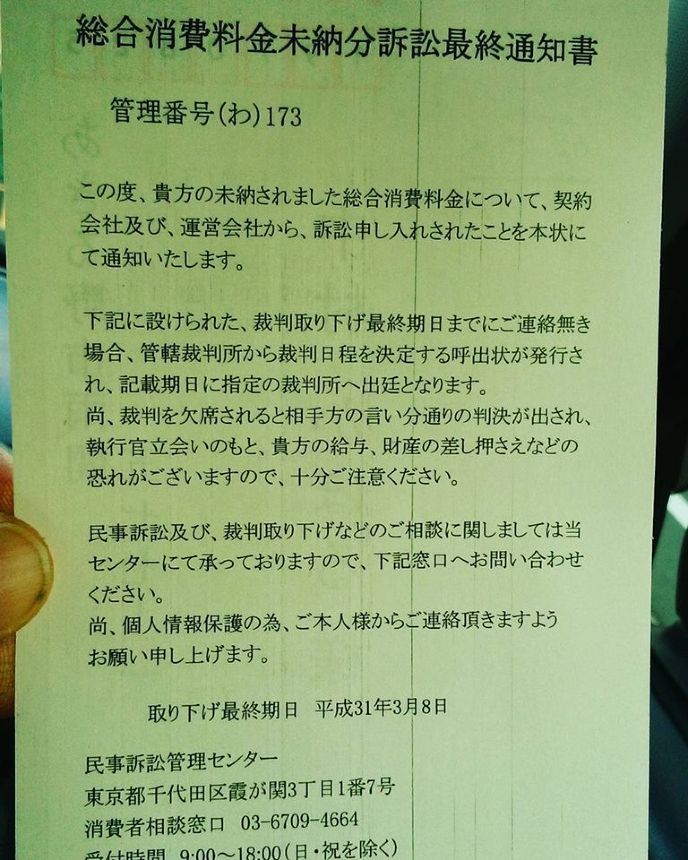 総合消費料金未納分訴訟最終通知書
管理番号(わ)173
この度、貴方の未納されました総合消費料金について、契約
会社及び、運営会社から、訴訟申し入れされたことを本状に
て通知いたします。
下記に設けられた、裁判取り下げ最終期日までにご連絡無き
場合、管轄裁判所から裁判日程を決定する呼出状が発行さ
れ、記載期日に指定の裁判所へ出廷となります。
尚、裁判を欠席されると相手方の言い分通りの判決が出され、
執行官立会いのもと、貴方の給与、財産の差し押さえなどの
恐れがございますので、十分ご注意ください。
民事訴訟及び、裁判取り下げなどのご相談に関しましては当
センターにて承っておりますので、下記窓口へお問い合わせ
ください。
尚、個人情報保護の為、ご本人様からご連絡頂きますよう
お願い申し上げます。
取り下げ最終期日 平成31年3月8日
民事訴訟管理センター
東京都千代田区霞が関3丁目1番7号
消費者相談窓口 03-6709-4664
受付時間 9:00～18:00(日・祝を除く)